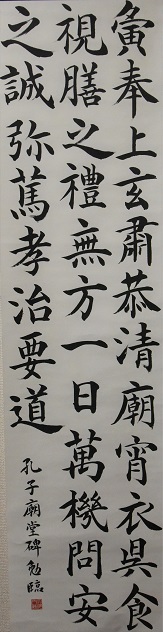 夤奉上玄肅恭清廟宵衣昃食
視膳之禮無方一日萬機問安
之誠弥篤孝治要道
孔子廟堂碑 勉臨